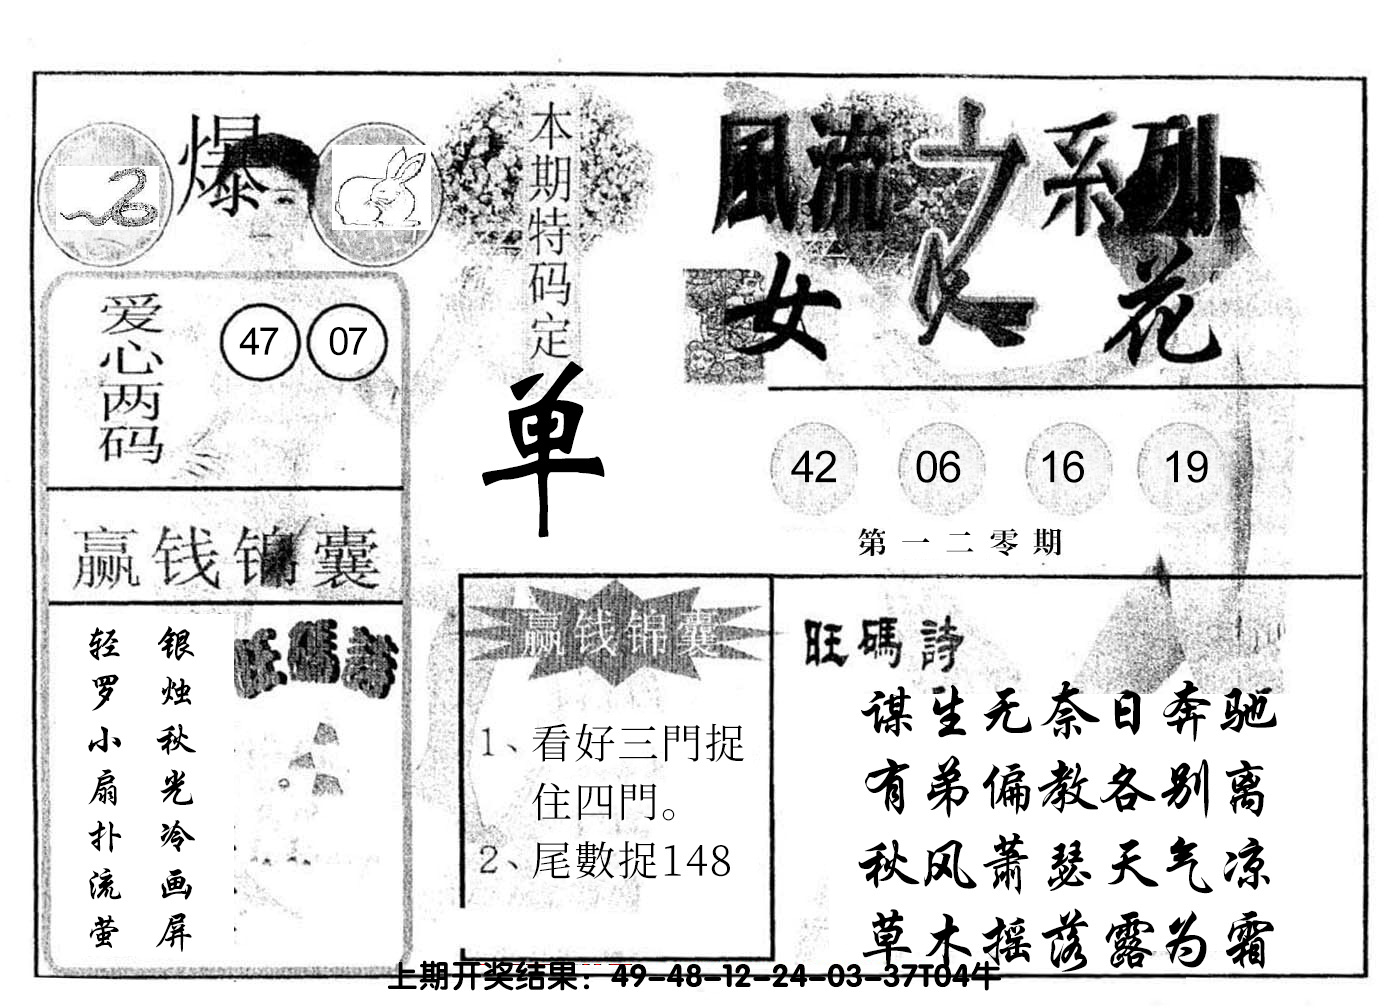 爆
本期特码定
单
風流之系列
女人花
爱心两码
47 07
42 06 16 19
第一二零期
赢钱锦囊
银烛秋光冷画屏
轻罗小扇扑流萤
旺碼詩
赢钱锦囊
1、看好三門捉
住四門。
2、尾數捉148
旺碼詩
谋生无奈日奔驰
有弟偏教各别离
秋风萧瑟天气凉
草木摇落露为霜
上期开奖结果：49-48-12-24-03-37T04牛